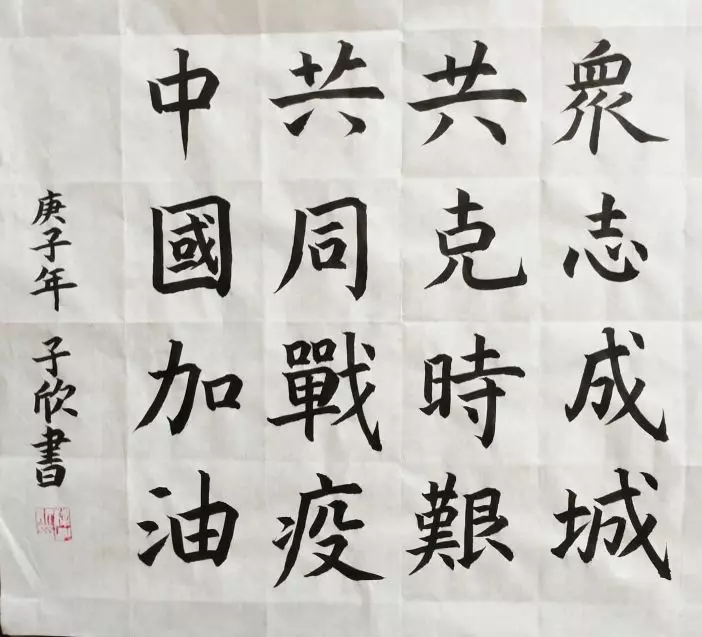 衆志成城
共克時艱
共同戰疫
中國加油
庚子年 子欣書